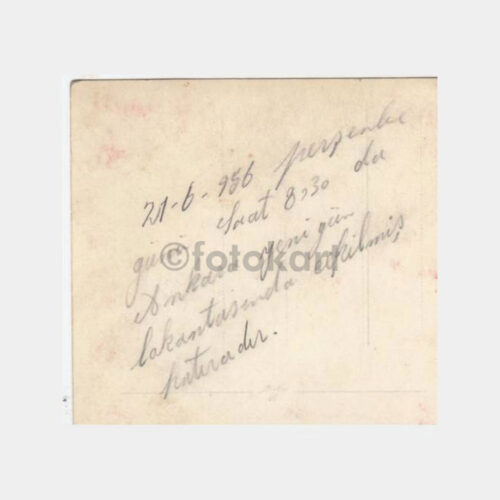 21-6-956 perşembe
günü Saat 8,30 da
Ankara Yenigün
lokantasında çekilmiş
hatıradır.
©fotokart